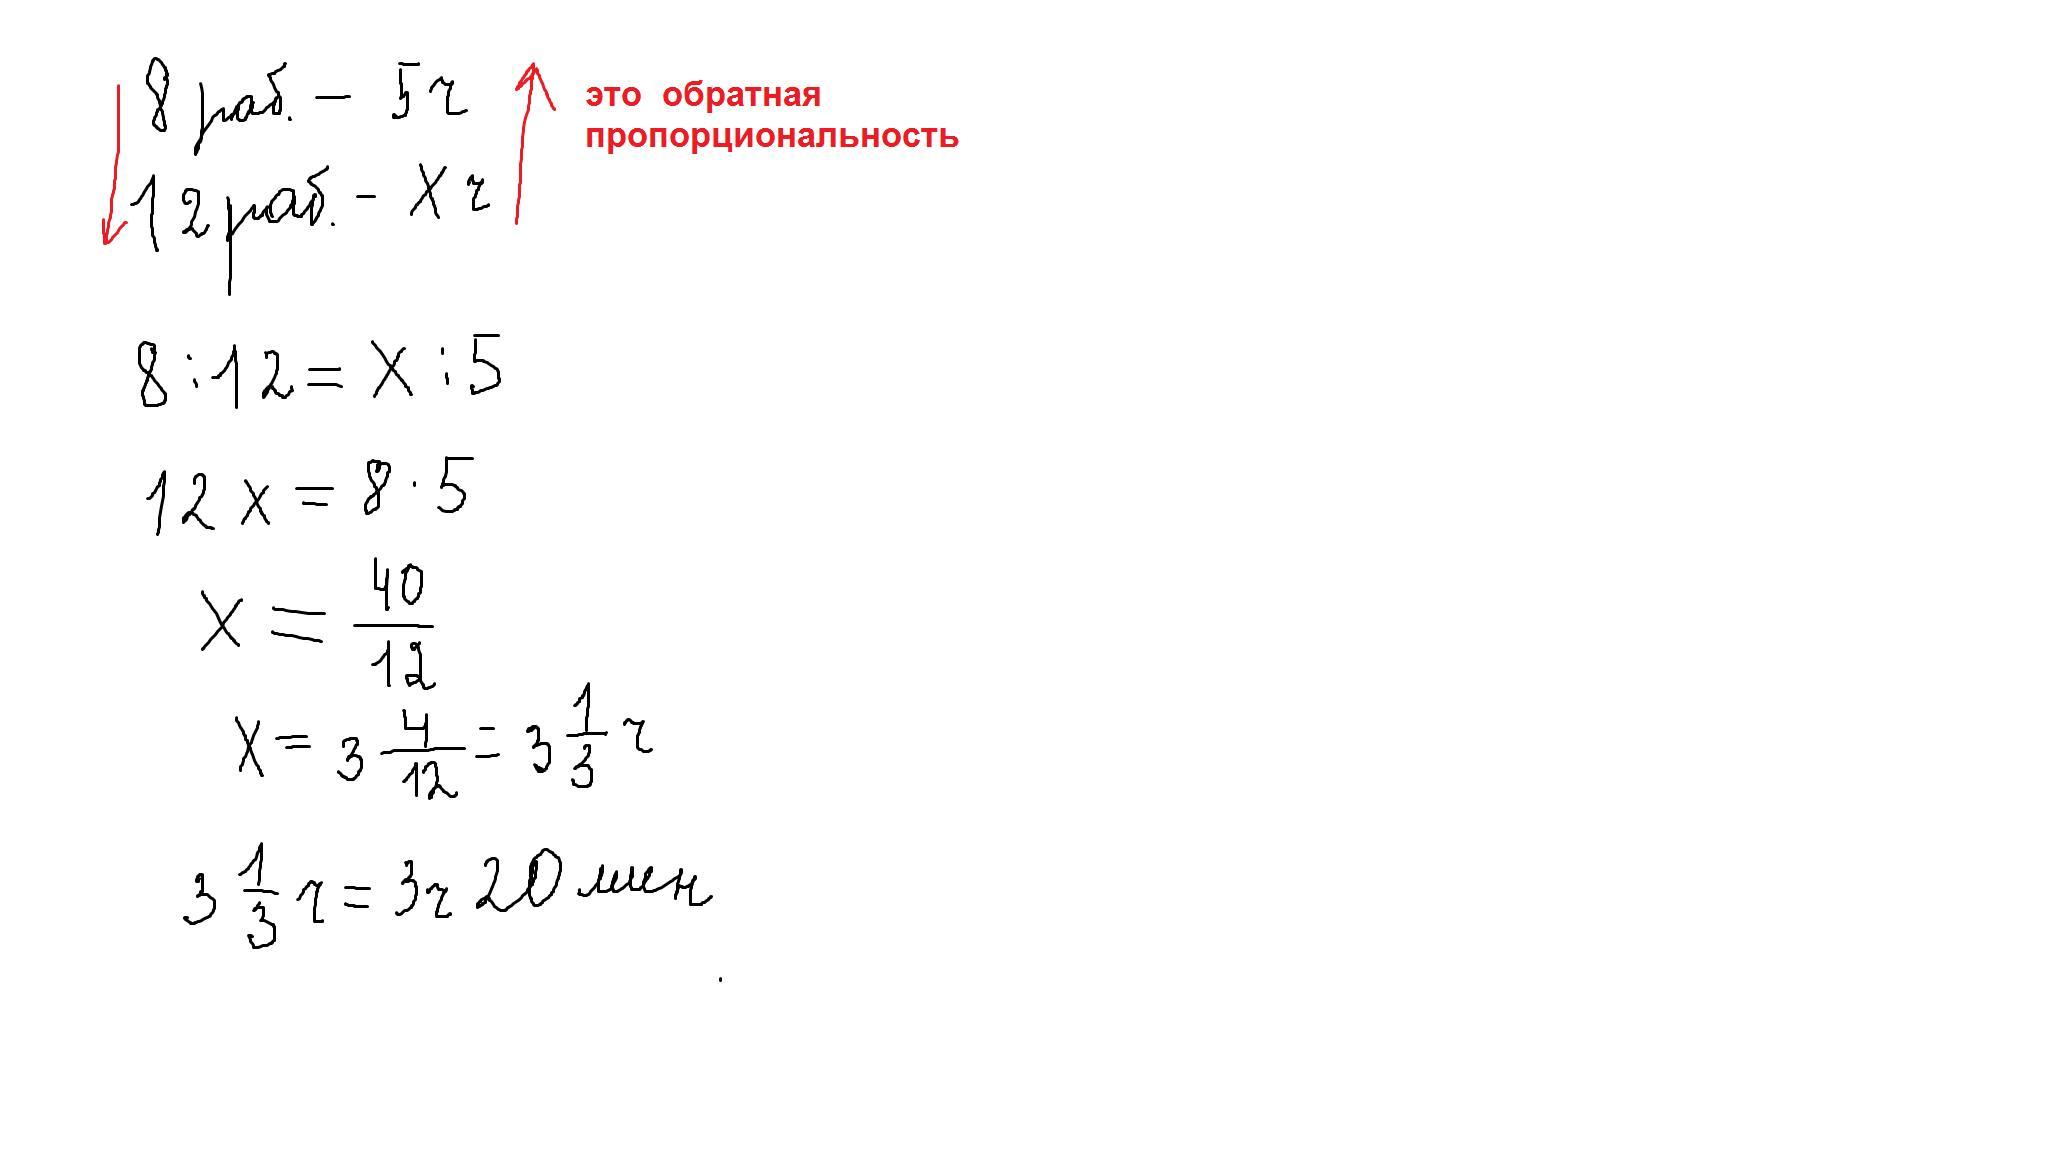 8 раб. – 5 ч
это обратная
пропорциональность
12 раб. - X ч
8 : 12 = X : 5
12 x = 8 · 5
X = 40/12
X = 3 4/12 = 3 1/3 ч
3 1/3 ч = 3ч 20 мин